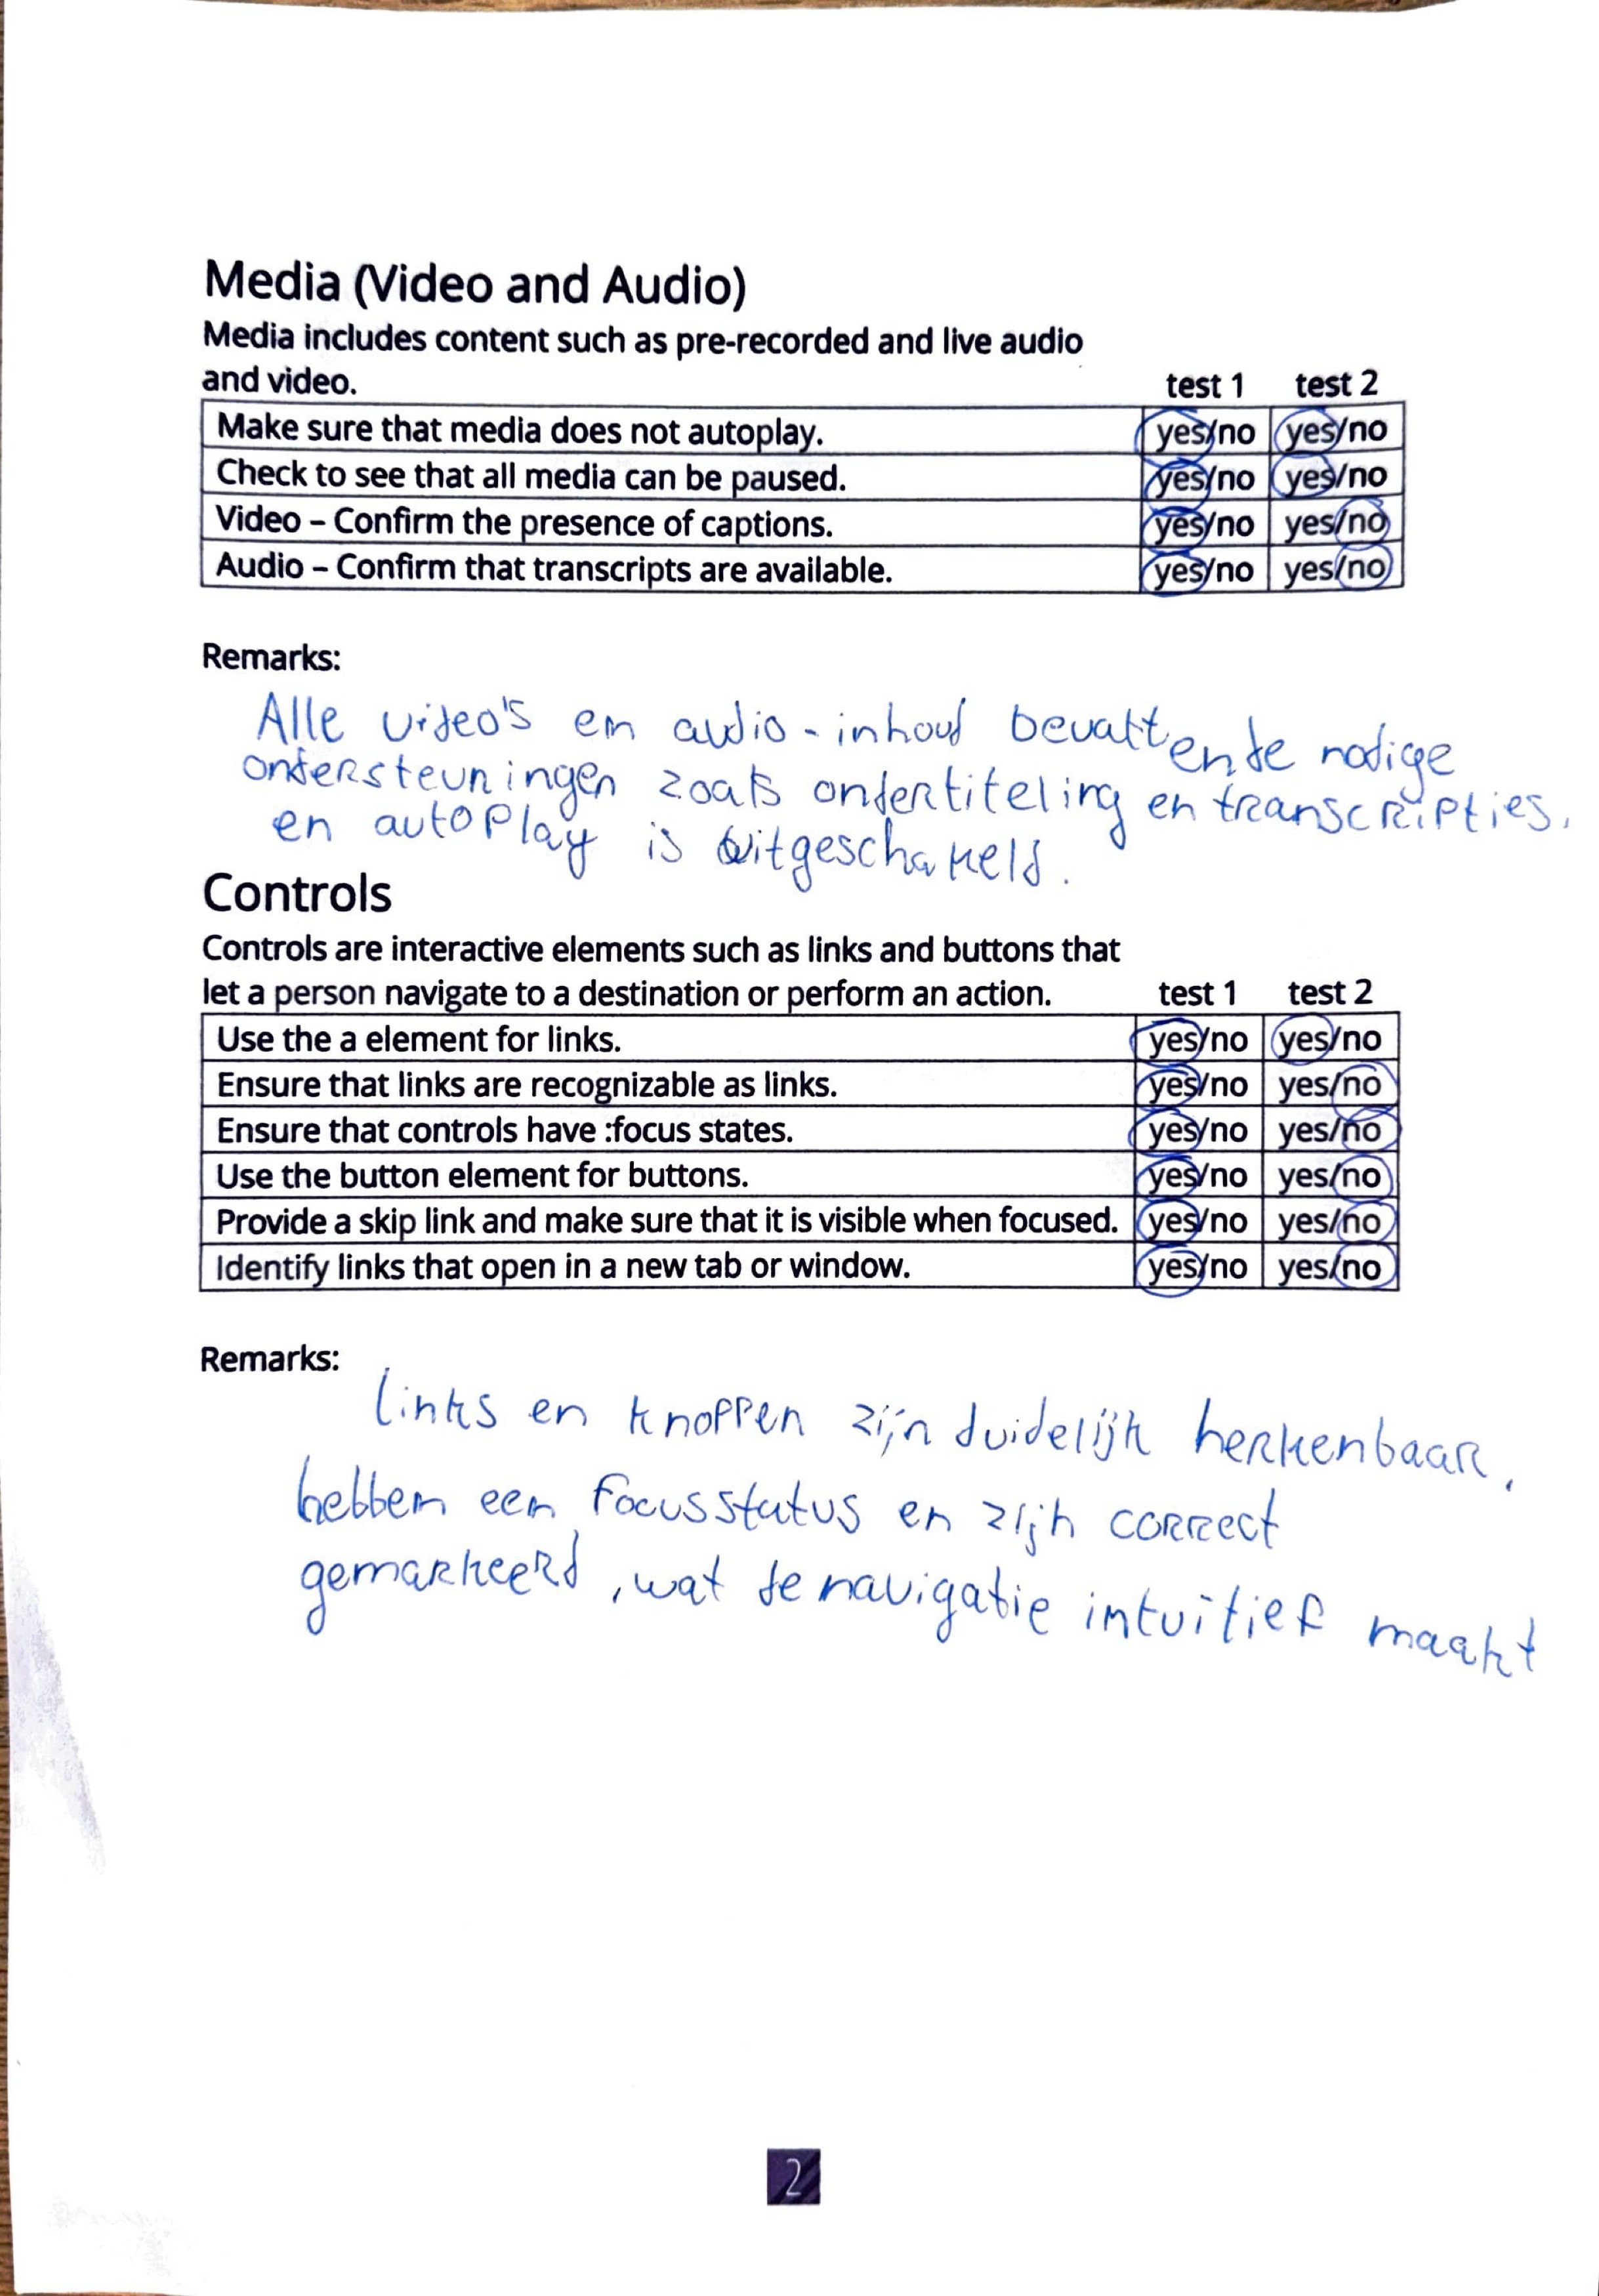 Media (Video and Audio)
Media includes content such as pre-recorded and live audio
and video. test 1 test 2
Make sure that media does not autoplay. yes/no yes/no
Check to see that all media can be paused. yes/no yes/no
Video – Confirm the presence of captions. yes/no yes/no
Audio – Confirm that transcripts are available. yes/no yes/no
Remarks:
Alle video's en audio-inhoud bevatten de nodige
ondersteuningen zoals ondertiteling en transcripties,
en autoplay is uitgeschakeld.
Controls
Controls are interactive elements such as links and buttons that
let a person navigate to a destination or perform an action. test 1 test 2
Use the a element for links. yes/no yes/no
Ensure that links are recognizable as links. yes/no yes/no
Ensure that controls have :focus states. yes/no yes/no
Use the button element for buttons. yes/no yes/no
Provide a skip link and make sure that it is visible when focused. yes/no yes/no
Identify links that open in a new tab or window. yes/no yes/no
Remarks:
links en knoppen zijn duidelijk herkenbaar,
hebben een focusstatus en zijn correct
gemarkeerd, wat de navigatie intuïtief maakt
2